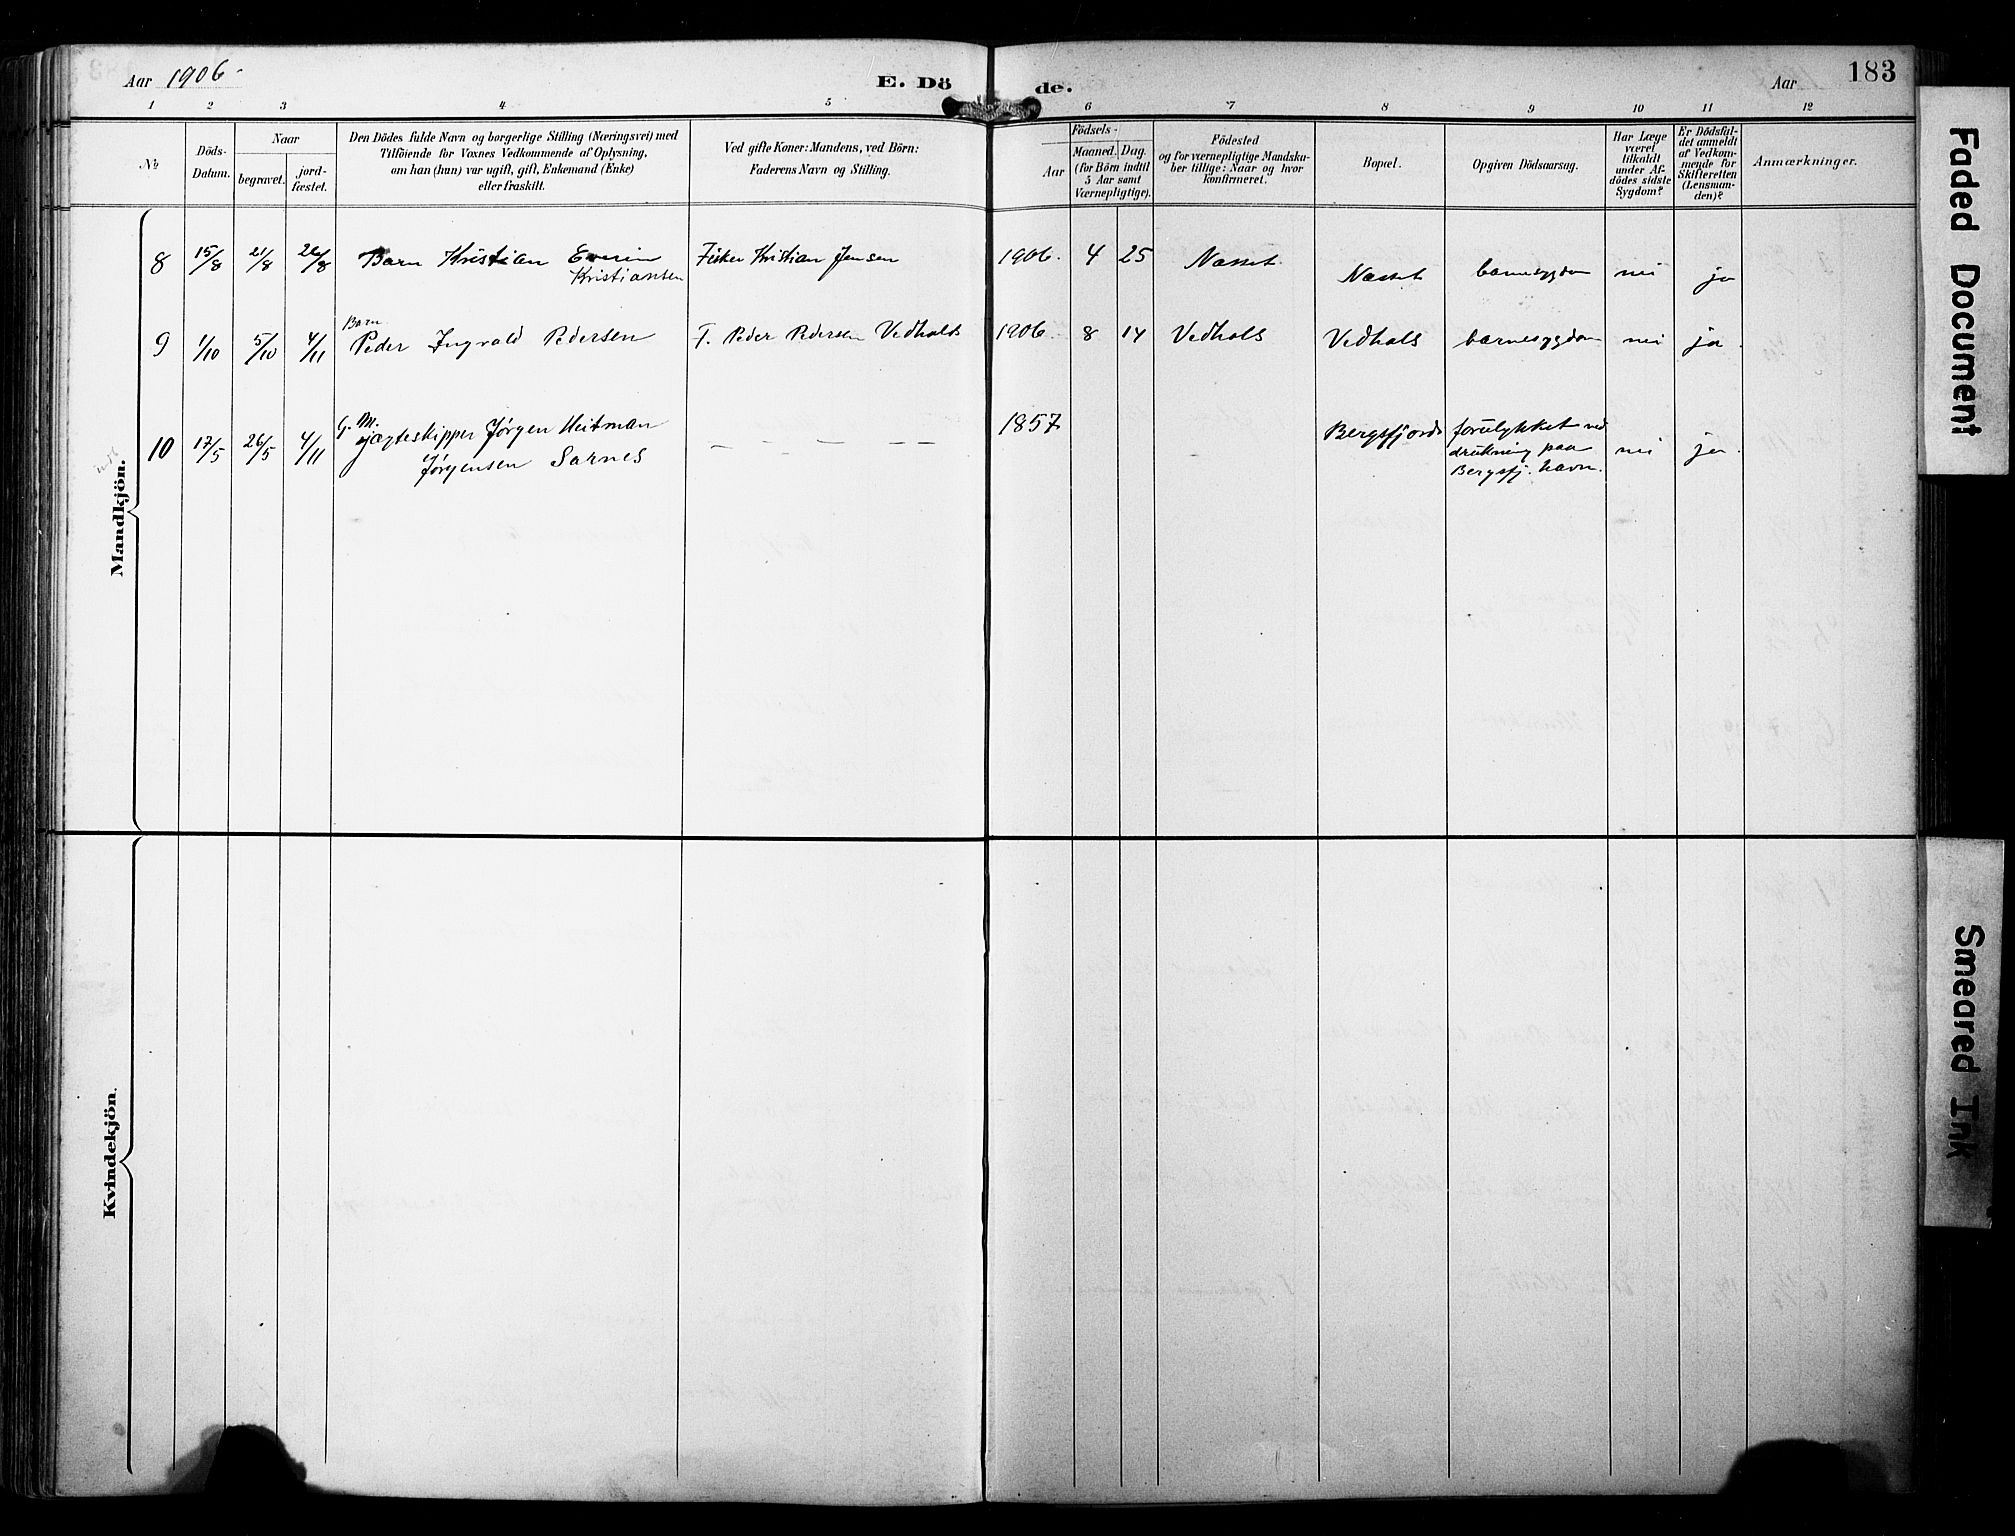 Aar 1906.
E. Dö
de.
Aar
183
1 2 3 4 5 6 7 8 9 10 11 12
No
Döds-
Datum.
Naar
begravet.
jord-
fæstet.
Den Dödes fulde Navn og borgerlige Stilling (Næringsvei) med
Tilföiende for Voxnes Vedkommende af Oplysning,
om han (hun) var ugift, gift, Enkemand (Enke)
eller fraskilt.
Ved gifte Koner: Mandens, ved Börn:
Faderens Navn og Stilling.
Födsels-
Aar
Maaned. Dag.
(for Börn indtil
5 Aar samt
Værnepligtige).
Födested
og for værnepligtige Mandska-
ber tillige: Naar og hvor
konfirmeret.
Bopæl.
Opgiven Dödsaarsag.
Har Læge
været
tilkaldt
under Af-
dödes sidste
Sygdom?
Er Dödsfal-
det anmeldt
af Vedkom-
mende for
Skifteretten
(Lensman-
den)?
Anmærkninger.
8 15/8 21/8 26/8 Barn Kristian
Kristiansen
Fisker Kristian Jensen 1906. 4 25 Næsset. Næsset barnesygdom nei ja
Barn
9 1/10 5/10 4/11 Peder Ingvald Pedersen F. Peder Pedersen Vedhols 1906. 8 14 Vedhols Vedhols barnesygdom nei ja.
G. M.
10 17/5 26/5 4/11 jagteskipper Jørgen Heitman
Jørgensen Sarnes
— — — — —
1857 Bergsfjord forulykket ved
drukning paa
Bergsfj. havn.
nei ja.
Mandkjön.
Kvindekjön.
Faded Document
Smeared Ink